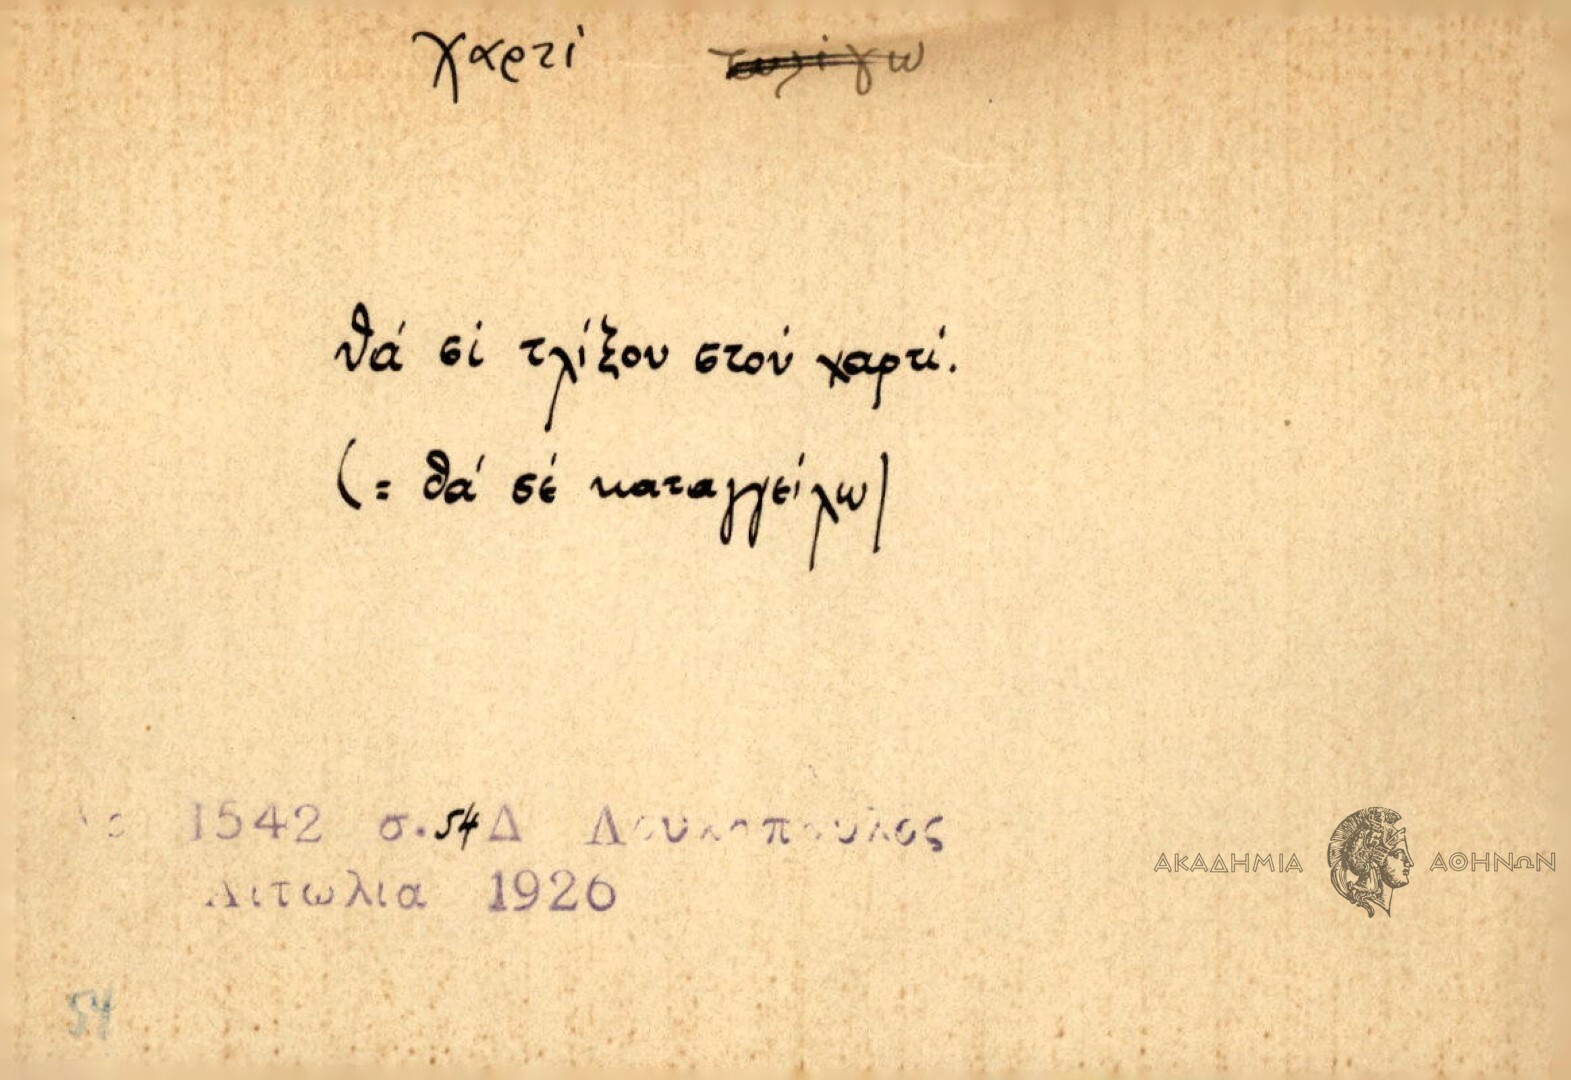 χαρτί τυλίγω
θά σί τλίξου στού χαρτί.
(= θά σέ καταγγείλω)
1542 σ. 54 Δ Λουκόπουλος
ΑΚΑΔΗΜΙΑ ΑΘΗΝΩΝ
Αιτωλια 1926
54